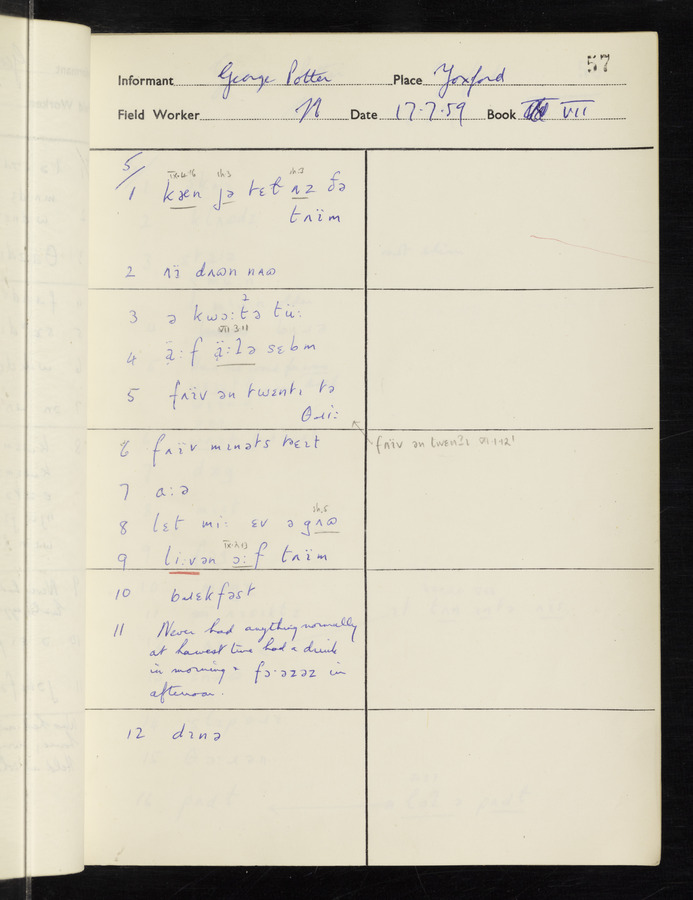 57
Informant George Potter Place Yoxford
Field Worker Date 17.7.59 Book VII
5/
1 kæn jə tɛt ʌz ðə
tʌïm
2 ʌï dʌɷn nʌɷ
2
3 ə kwɔ:tə tü:
VII 3.11
4 ä:f ä:lə sɛbm
5 fʌïv ən twɛntɪ tə
θɹi:
6 fʌïv mɪnəts tæɪt
fʌïv ən twɛnʔɪ VII.1.12!
7 a:ə
8 lɛt mi: ɛv ə gʌɷ
9 li:vən ɔ:f tʌïm
10 bɹɛkfəst
11 Never had anything normally
at harvest time had a drink
in morning + fɔ:əzəz in
afternoon.
12 dɪnə